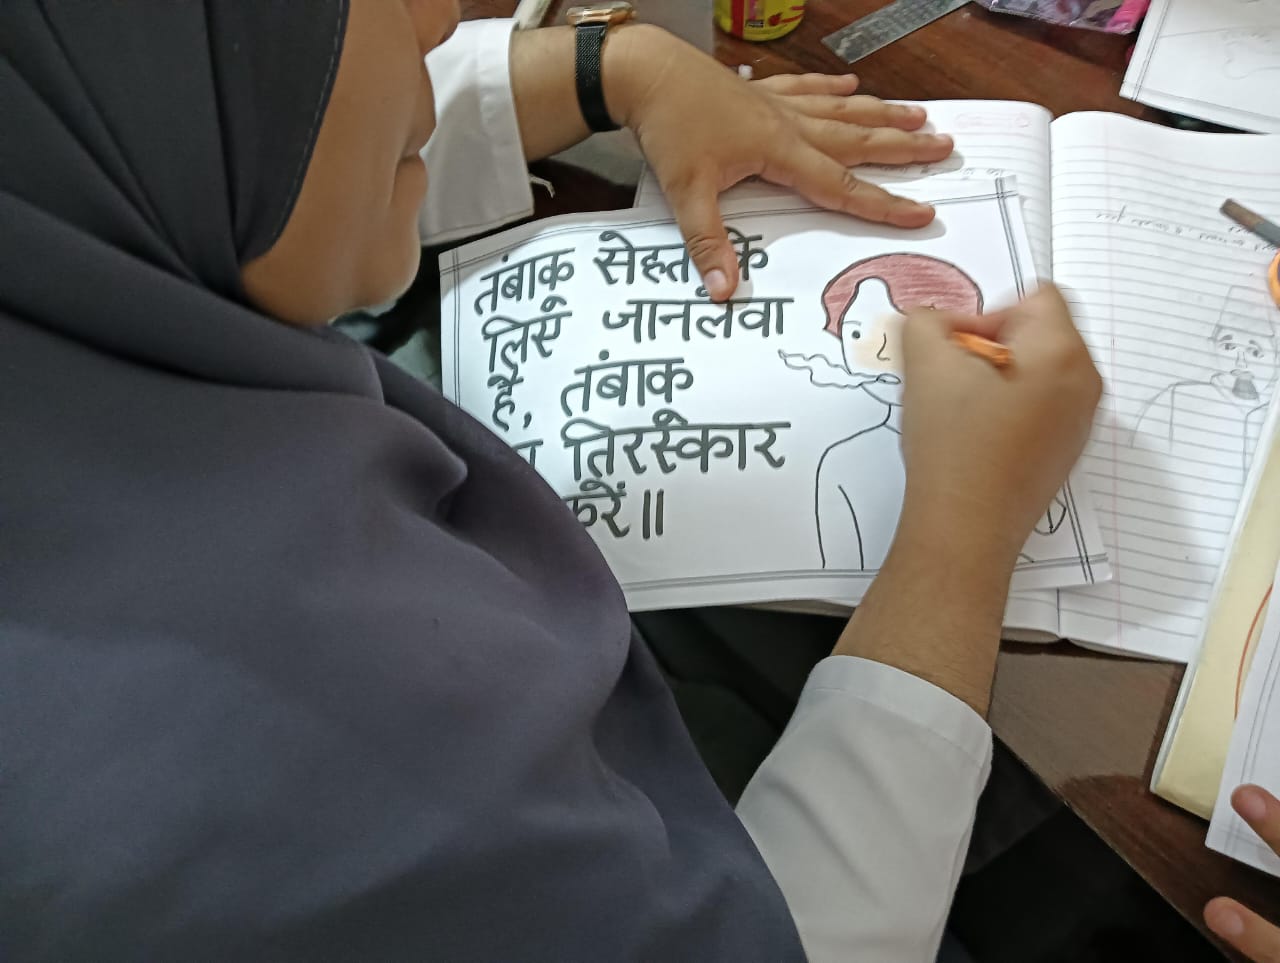 तंबाक सेहत के
लिसे जानलेवा
है, तंबाक
तिरस्कार
करें॥